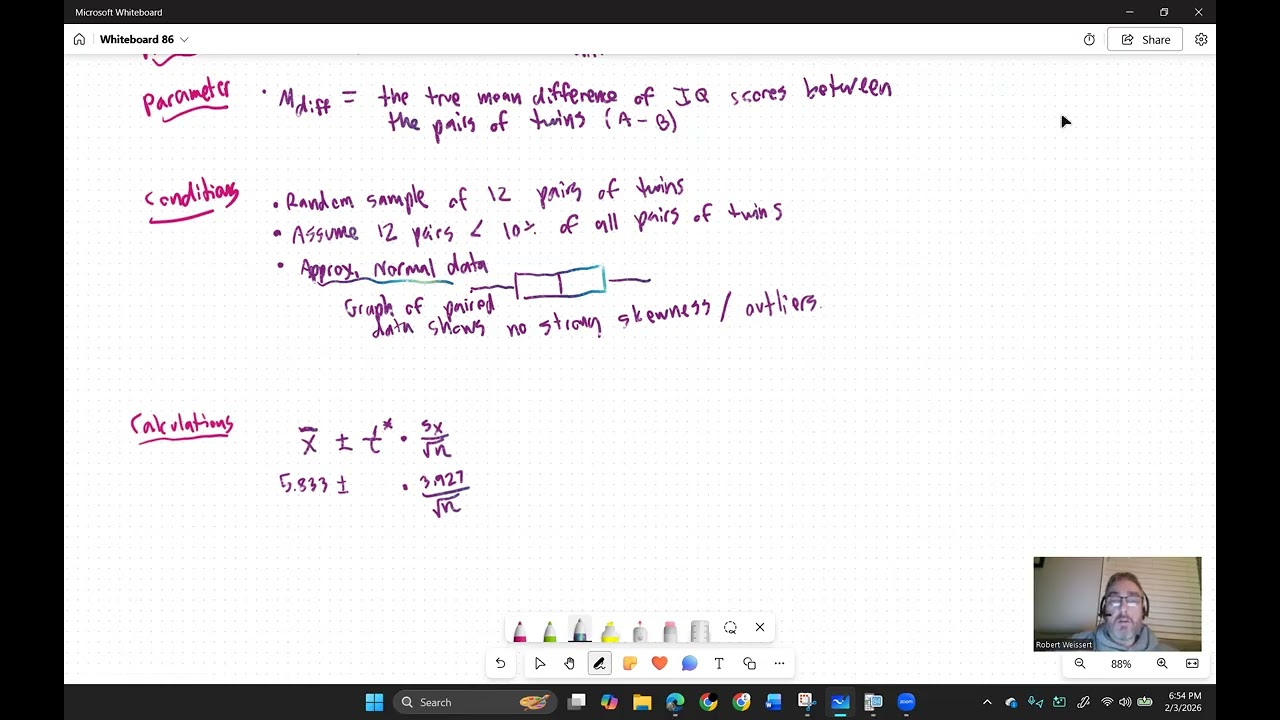 Microsoft Whiteboard
Whiteboard 86
Share
Parameter
• μdiff = the true mean difference of IQ scores between
the pairs of twins (A - B)
Conditions
• Random sample of 12 pairs of twins
• Assume 12 pairs < 10% of all pairs of twins
• Approx. Normal data
Graph of paired
data shows no strong skewness / outliers.
Calculations
x̄ ± t* · sx/√n
5.833 ± · 3.927/√n
Robert Weissert
88%
Search
6:54 PM
2/3/2026